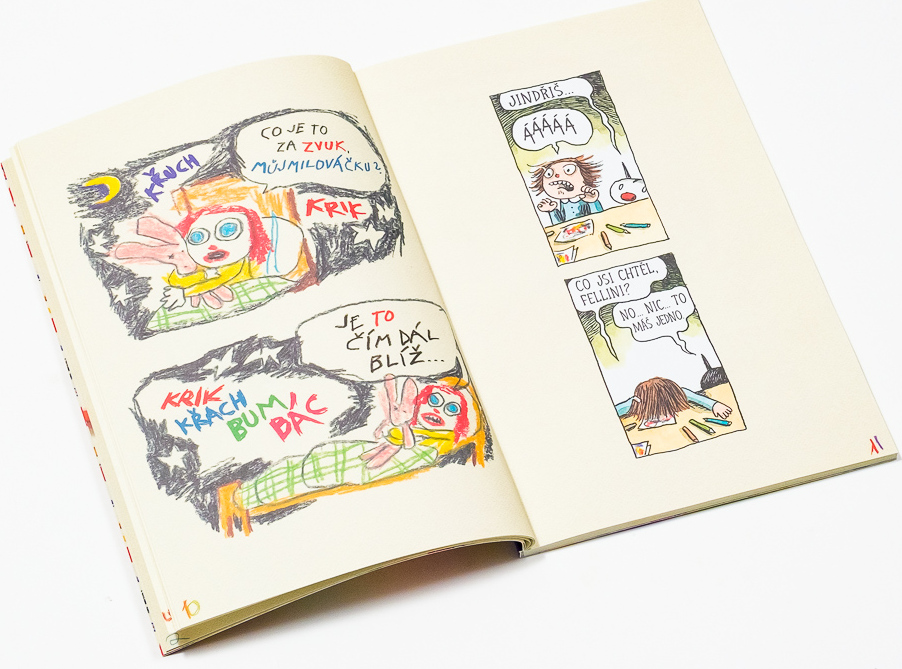 KŘUCH
CO JE TO
ZA ZVUK,
MŮJ MILOVÁČKU?
KRIK
JE TO
ČÍM DÁL
BLÍŽ...
KRIK
KŘACH
BUM
BÁC
10
JINDŘIŠ...
ÁÁÁÁÁ
CO JSI CHTĚL,
FELLINI?
NO... NIC... TO
MÁŠ JEDNO.
11